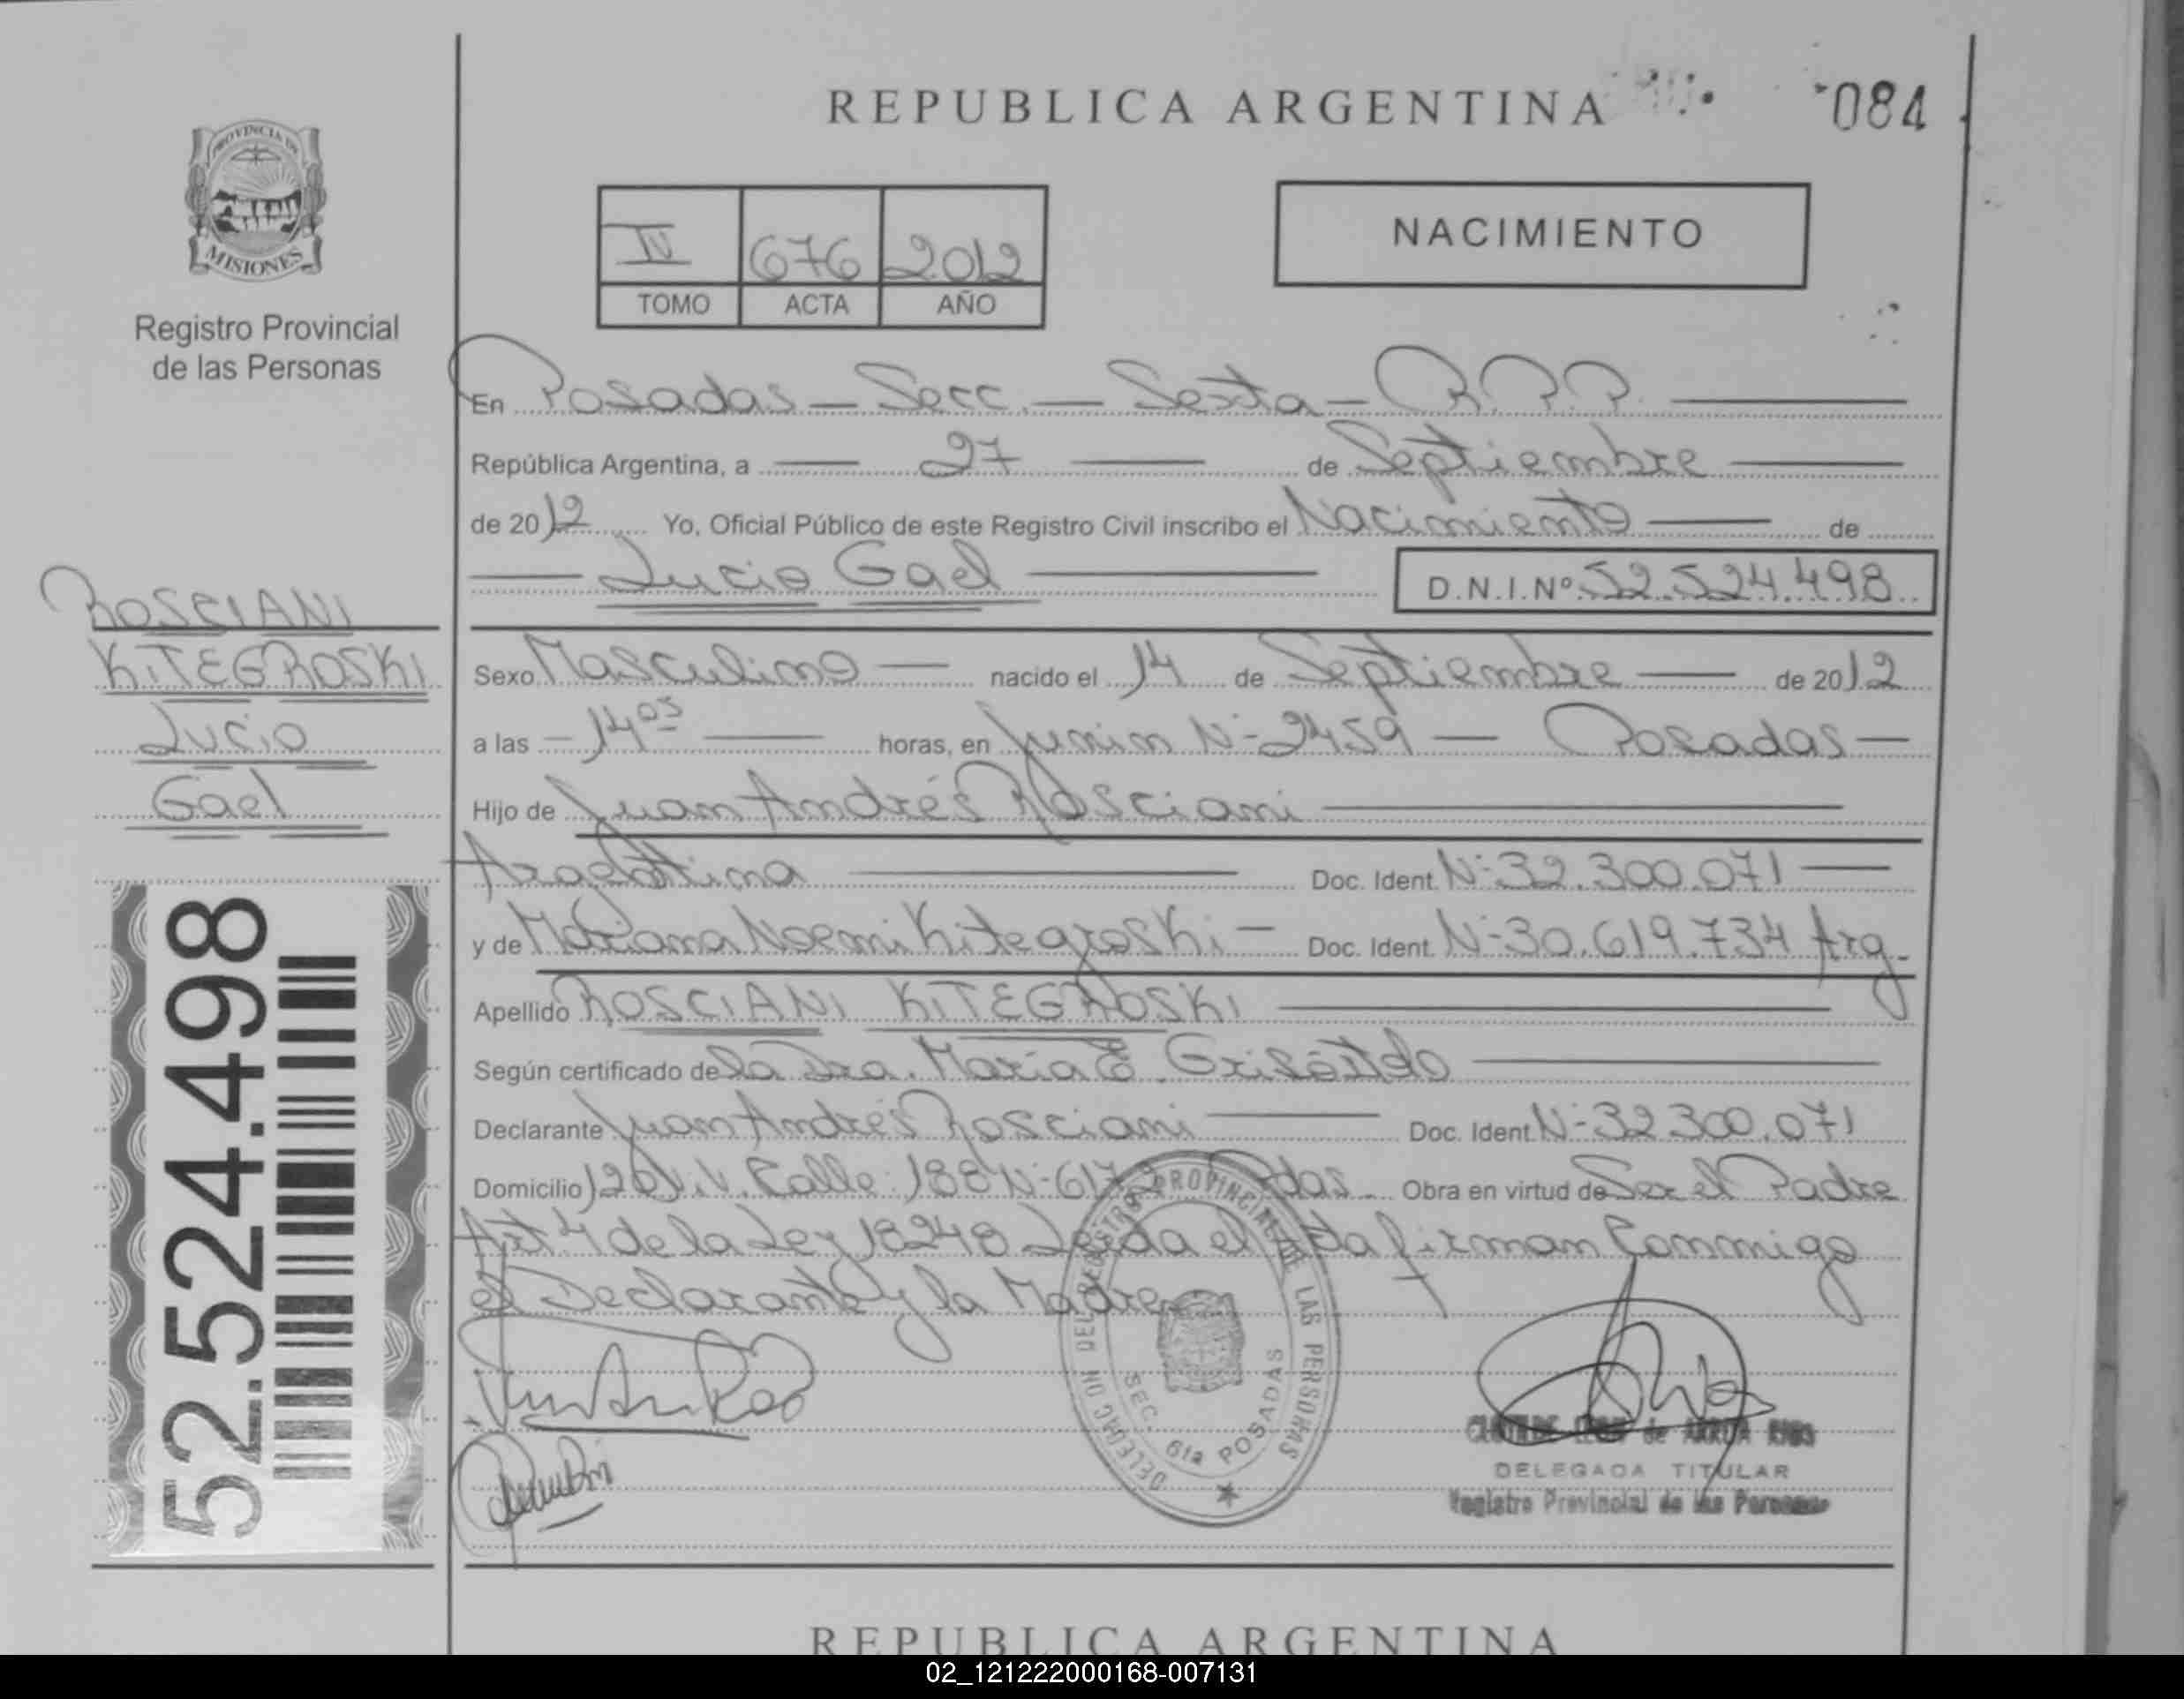 REPUBLICA ARGENTINA
084
PROVINCIA DE
MISIONES
Registro Provincial
de las Personas
IV 676 2012
TOMO ACTA AÑO
NACIMIENTO
En Posadas — Secc. — Sexta — R.P.P.
República Argentina, a — 27 — de Septiembre
de 2012 Yo, Oficial Público de este Registro Civil inscribo el Nacimiento — de
Lucio Gael
D.N.I.Nº 52.524.498
ROSCIANI
KITEGROSKI
Lucio
Gael
52.524.498
Sexo Masculino — nacido el 14 de Septiembre — de 2012
a las — 14 05 — horas, en Junin N-2459 — Posadas —
Hijo de Juan Andrés Rosciani
Argentina — Doc. Ident. N-32.300.071 —
y de Mariana Noemi Kitegroski — Doc. Ident. N-30.619.734 Arg.
Apellido ROSCIANI KITEGROSKI
Según certificado de la Dra. Maria E.
Declarante Juan Andrés Rosciani — Doc. Ident. N-32.300.071
Domicilio 120 V.V. Calle 188 N-617 Pdas — Obra en virtud de Ser el Padre
Art 4 de la Ley 18248 Leida el Acta firman Conmigo
el Declarante y la Madre
DELEGAC Nº DEL REGISTRO PROVINCIAL DE LAS PERSONAS
SEC. 6ta POSADAS
DELEGADA TITULAR
Registro Provincial de las Personas
REPUBLICA ARGENTINA
02_121222000168-007131